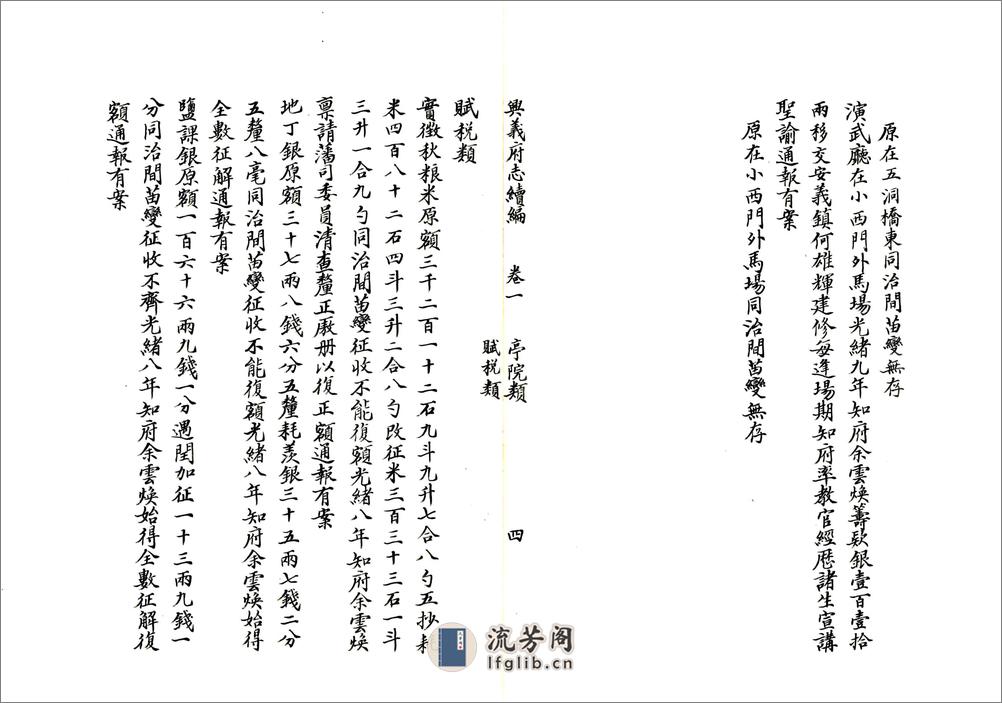 原在五洞橋東同治間苗變無存
演武廳在小西門外馬場光緒九年知府余雲煥籌欵銀壹百壹拾
兩移交安義鎮何雄輝建修每逢場期知府率教官經歷諸生宣講
聖諭通報有案
原在小西門外馬場同治間苗變無存
興義府志續編 卷一 亭院類 四
賦税類
賦税類
實徵秋粮米原額三千二百一十二石九斗九升七合八勺五抄耗
米四百八十二石四斗三升二合八勺改征米三百三十三石一斗
三升一合九勺同治間苗變征收不能復額光緒八年知府余雲煥
禀請藩司委員清查釐正厫册以復正額通報有案
地丁銀原額三十七兩八錢六分五釐耗羨銀三十五兩七錢二分
五釐八毫同治間苗變征收不能復額光緒八年知府余雲煥始得
全數征解通報有案
鹽課銀原額一百六十六兩九錢一分遇閏加征一十三兩九錢一
分同治間苗變征收不齊光緒八年知府余雲煥始得全數征解復
額通報有案
流芳阁
lfglib.cn